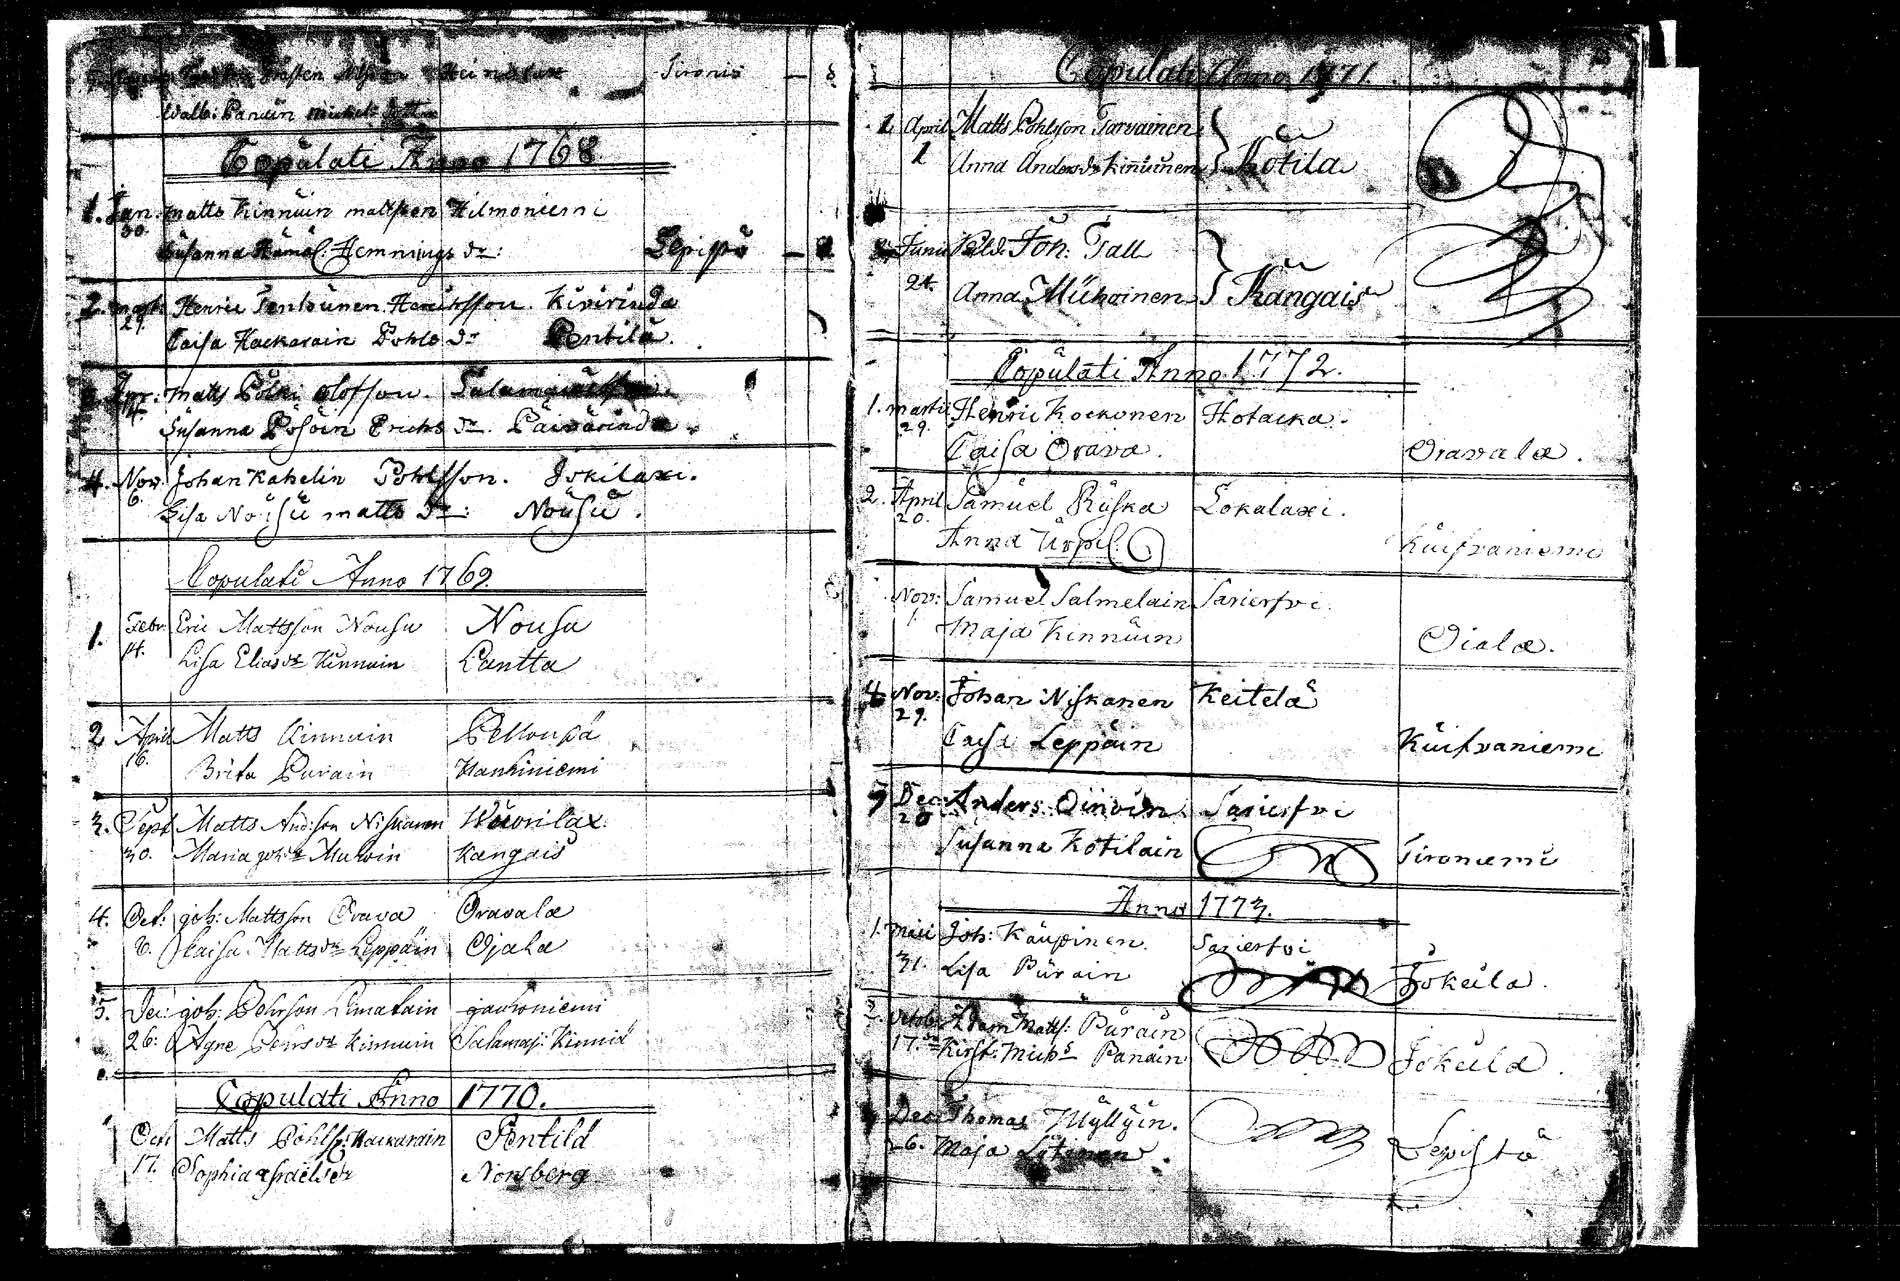 Walb: Parain Michels
Copulati Anno 1768.
1. Jan: Matts Kinnuin Mattsson Hilmoniemi
30. Susanna Hämäl: Hemnings dr: Lepistö
2. Mart: Henric Tenhuinen Henricsson. Kivirinda
29. Caisa Hackarain Pohls dr Pentilä.
3. Apr: Matts Pölki Olofsson.
4. Susanna Pösöin Erichs dr. Päivärinda.
4. Nov: Johan Kahelin Pohlsson. Jokilaxi.
6. Lisa Nousu Matts dr: Nousu.
Copulati Anno 1769.
1. Febr: Eric Mattsson Nousu Nousu
14. Lisa Elias dr Kinnuin Lantta
2 April Matts Kinnuin Pellonpä
16. Brita Purain Hanhiniemi
3. Sept Matts And:son Niskanen Wuorilax.
30. Maria Joh: dr Muhoin Kangais
4. Oct: Joh: Mattsson Orava Oravala
6. Kaisa Matts dr Leppäin Ojala
5. Dec: Joh: Pehrson Limatain Jauhoniemi
26: Agne Pehrs dr Kinnuin Salamaj: Kinnu
Copulati Anno 1770.
Oct: Matts Pohlss: Hackarain Pentilä
17. Sophia Israelsdr Norsberg
Copulati Anno 1771.
1 April Matts Pohlsson Tarvainen
1 Anna Anders dr Kinnuinen } Kotila
Junii Joh: Tall
24. Anna Muhoinen } Kangais
Copulati Anno 1772.
1. Martii Henric Kockonen Hotacka.
29. Caisa Orava. Oravala.
2. April Samuel Ruska Lokalaxi.
20. Anna Urpil: Kuifvaniemi
Nov: Samuel Salmelain Sarierfvi.
Maja Kinnuin Oiala.
4 Nov: Johan Niskanen Keitelä
29. Caisa Leppäin Kuifvaniemi
5 Dec: Anders Oinoin Sarierfvi
26 Susanna Kotilain Tironiemi
Anno 1773.
1. Maii Joh: Kaupinen. Sarierfvi
31. Lisa Purain Jokela.
2. Octobr Adam Matts: Purain
17. Kirst: Mich: dr Panain Jokela.
Dec: Thomas Myllyin.
26. Maja Lytinen. Lepistö